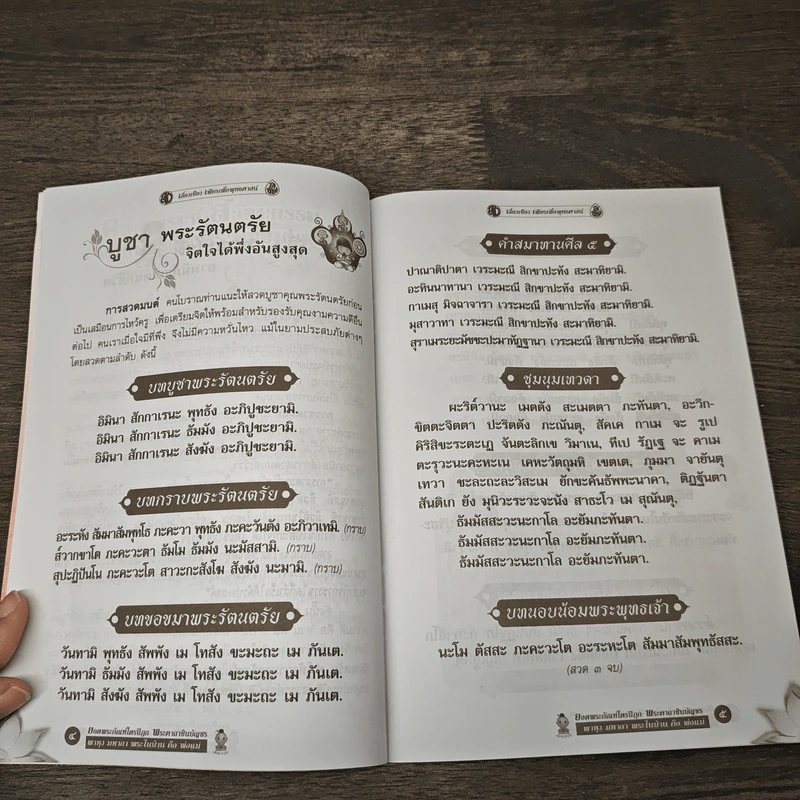 เลี่ยงเชียง เพียรเพื่อพุทธศาสน์
บูชา พระรัตนตรัย
จิตใจได้พึ่งอันสูงสุด
การสวดมนต์ คนโบราณท่านแนะให้สวดบูชาคุณพระรัตนตรัยก่อน
เป็นเสมือนการไหว้ครู เพื่อเตรียมจิตให้พร้อมสำหรับรองรับคุณงามความดีอื่น
ต่อไป คนเราเมื่อใจมีที่พึ่ง จึงไม่มีความหวั่นไหว แม้ในยามประสบภัยต่างๆ
โดยสวดตามลำดับ ดังนี้
บทบูชาพระรัตนตรัย
อิมินา สักกาเรนะ พุทธัง อะภิปูชะยามิ.
อิมินา สักกาเรนะ ธัมมัง อะภิปูชะยามิ.
อิมินา สักกาเรนะ สังฆัง อะภิปูชะยามิ.
บทกราบพระรัตนตรัย
อะระหัง สัมมาสัมพุทโธ ภะคะวา พุทธัง ภะคะวันตัง อะภิวาเทมิ. (กราบ)
ส๎วากขาโต ภะคะวะตา ธัมโม ธัมมัง นะมัสสามิ. (กราบ)
สุปะฏิปันโน ภะคะวะโต สาวะกะสังโฆ สังฆัง นะมามิ. (กราบ)
บทขอขมาพระรัตนตรัย
วันทามิ พุทธัง สัพพัง เม โทสัง ขะมะถะ เม ภันเต.
วันทามิ ธัมมัง สัพพัง เม โทสัง ขะมะถะ เม ภันเต.
วันทามิ สังฆัง สัพพัง เม โทสัง ขะมะถะ เม ภันเต.
๔ ยอดพระกัณฑ์ไตรปิฎก พระคาถาชินบัญชร
พาหุง มหากา พระในบ้าน คือ พ่อแม่
เลี่ยงเชียง เพียรเพื่อพุทธศาสน์
คำสมาทานศีล ๕
ปาณาติปาตา เวระมะณี สิกขาปะทัง สะมาทิยามิ.
อะทินนาทานา เวระมะณี สิกขาปะทัง สะมาทิยามิ.
กาเมสุ มิจฉาจารา เวระมะณี สิกขาปะทัง สะมาทิยามิ.
มุสาวาทา เวระมะณี สิกขาปะทัง สะมาทิยามิ.
สุราเมระยะมัชชะปะมาทัฏฐานา เวระมะณี สิกขาปะทัง สะมาทิยามิ.
ชุมนุมเทวดา
ผะริต๎วานะ เมตตัง สะเมตตา ภะทันตา, อะวิก-
ขิตตะจิตตา ปะริตตัง ภะณันตุ, สัคเค กาเม จะ รูเป
คิริสิขะระตะเฏ จันตะลิกเข วิมาเน, ทีเป รัฏเฐ จะ คาเม
ตะรุวะนะคะหะเน เคหะวัตถุมหิ เขตเต, ภุมมา จายันตุ
เทวา ชะละถะละวิสะเม ยักขะคันธัพพะนาคา, ติฏฐันตา
สันติเก ยัง มุนิวะระวะจะนัง สาธะโว เม สุณันตุ,
ธัมมัสสะวะนะกาโล อะยัมภะทันตา.
ธัมมัสสะวะนะกาโล อะยัมภะทันตา.
ธัมมัสสะวะนะกาโล อะยัมภะทันตา.
บทนอบน้อมพระพุทธเจ้า
นะโม ตัสสะ ภะคะวะโต อะระหะโต สัมมาสัมพุทธัสสะ.
(สวด ๓ จบ)
ยอดพระกัณฑ์ไตรปิฎก พระคาถาชินบัญชร ๕
พาหุง มหากา พระในบ้าน คือ พ่อแม่